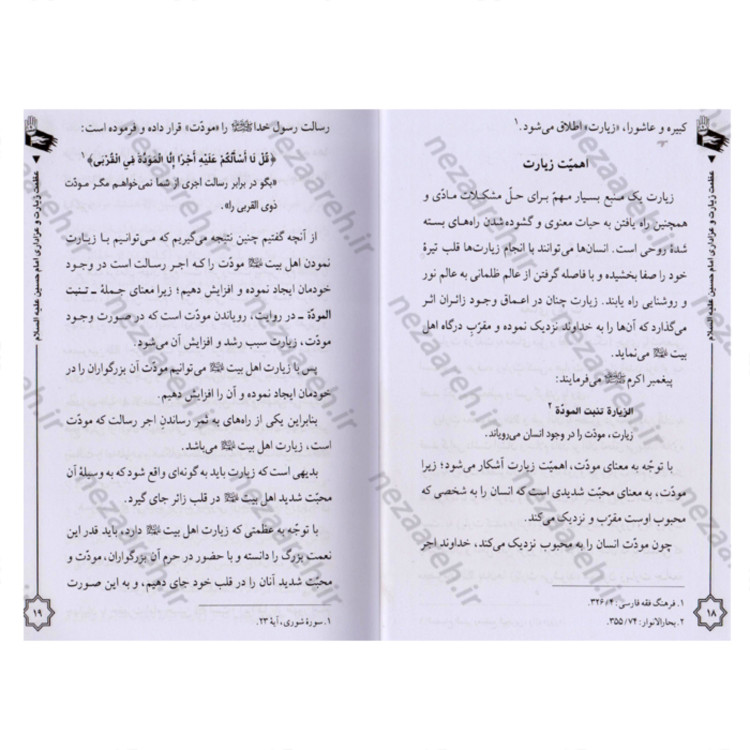 کبیره و عاشورا، «زیارت» اطلاق می‌شود.۱
اهمیّت زیارت
زیارت یک صنع بسیار مهمّ برای حلّ مشکلات مادّی و
همچنین راه یافتن به حیات معنوی و گشوده‌شدن راه‌های بسته
شدهٔ روحی است. انسان‌ها می‌توانند با انجام زیارت‌ها قلب تیرهٔ
خود را صفا بخشیده و با فاصله گرفتن از عالم ظلمانی به عالم نور
و روشنایی راه یابند. زیارت چنان در اعماق وجود زائران اثر
می‌گذارد که آن‌ها را به خداوند نزدیک نموده و مقرّبِ درگاه اهل
بیت می‌نماید.
پیغمبر اکرم می‌فرمایند:
الزیارة تنبت المودّة ۲
زیارت، مودّت را در وجود انسان می‌رویاند.
با توجّه به معنای مودّت، اهمیّت زیارت آشکار می‌شود؛ زیرا
مودّت، به معنای محبّت شدیدی است که انسان را به شخصی که
محبوب اوست مقرّب و نزدیک می‌کند.
چون مودّت انسان را به محبوب نزدیک می‌کند، خداوند اجر
۱. فرهنگ فقه فارسی: ۳۲۶/۴.
۲. بحارالانوار: ۳۵۵/۷۴.
۱۸
عظمت زیارت و عزاداری امام حسین علیه السلام
رسالت رسول خدا را «مودّت» قرار داده و فرموده است:
﴿قُلْ لَا أَسْأَلُكُمْ عَلَيْهِ أَجْرًا إِلَّا الْمَوَدَّةَ فِي الْقُرْبَى﴾۱
«بگو در برابر رسالت اجری از شما نمی‌خواهم مگر مودّت
ذوی القربی را».
از آنچه گفتیم چنین نتیجه می‌گیریم که می‌توانیم با زیارت
نمودن اهل بیت مودّت را که اجر رسالت است در وجود
خودمان ایجاد نموده و افزایش دهیم؛ زیرا معنای جملهٔ ـ تنبت
المودّة ـ در روایت، رویاندن مودّت است که در صورت وجود
مودّت، زیارت سبب رشد و افزایش آن می‌شود.
پس با زیارت اهل بیت می‌توانیم مودّت آن بزرگواران را در
خودمان ایجاد نموده و آن را افزایش دهیم.
بنابراین یکی از راه‌های به ثمر رساندنِ اجر رسالت که مودّت
است، زیارت اهل بیت می‌باشد.
بدیهی است که زیارت باید به گونه‌ای واقع شود که به وسیلهٔ آن
محبّت شدید اهل بیت در قلب زائر جای گیرد.
با توجّه به عظمتی که زیارت اهل بیت دارد، باید قدر این
نعمت بزرگ را دانسته و با حضور در حرم آن بزرگواران، مودّت و
محبّت شدید آنان را در قلب خود جای دهیم، و به این صورت
۱. سورهٔ شوری، آیهٔ ۲۳.
۱۹
عظمت زیارت و عزاداری امام حسین علیه السلام
nezaareh.ir
nezaareh.ir
nezaareh.ir
nezaareh.ir
nezaareh.ir
nezaareh.ir